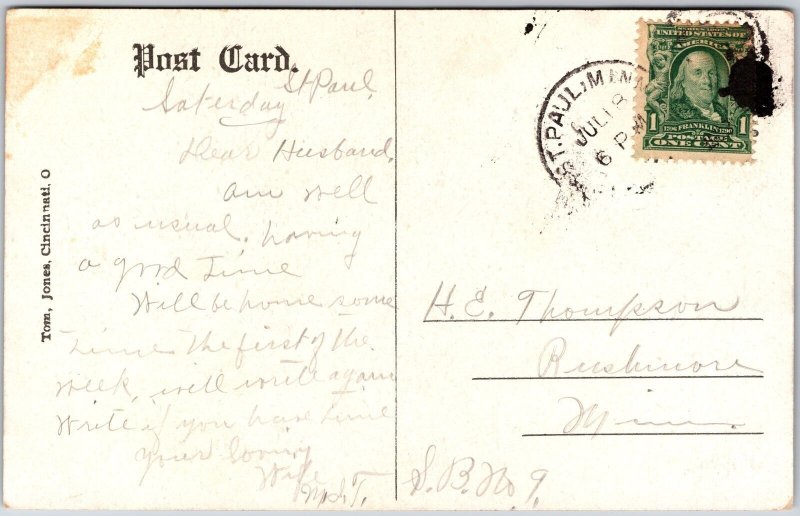 Post Card.
St Paul,
Saturday
Dear Husband,
am well
as usual, having
a good time
Will be home some
time the first of the
week, will write again
Write if you have time
your loving
Wife
M.S.T.
Tom, Jones, Cincinnati, O
ST. PAUL, MINN
JUL 18
6 P M
UNITED STATES OF
AMERICA
1 1
FRANKLIN
POSTAGE
ONE CENT
H. E. Thompson
Rushmore
Minn.
S.B. No 9.